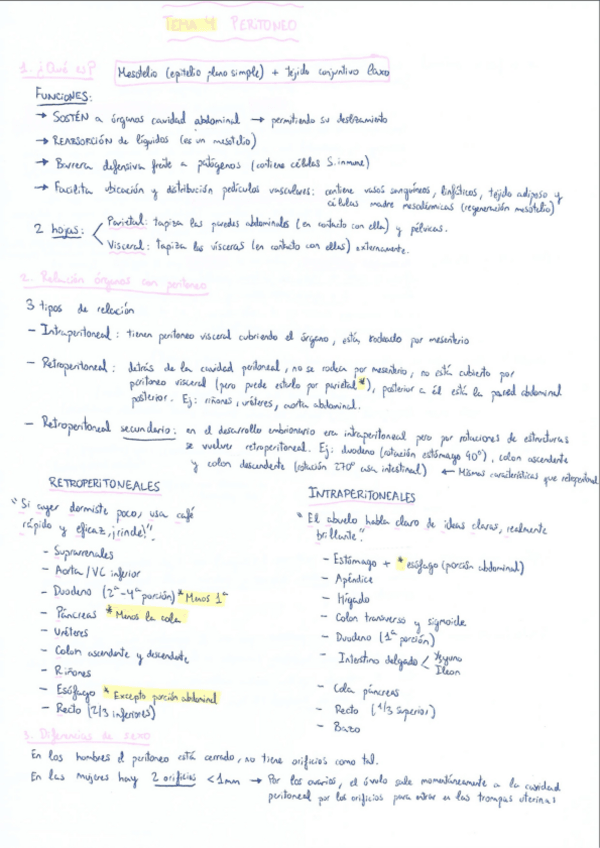 TEMA 4 PERITONEO
1. ¿Qué es? Mesotelio (epitelio plano simple) + tejido conjuntivo laxo
FUNCIONES:
→ SOSTÉN a órganos cavidad abdominal → permitiendo su deslizamiento
→ REABSORCIÓN de líquidos (es un mesotelio)
→ Barrera defensiva frente a patógenos (contiene células S.inmune)
→ Facilita ubicación y distribución pedículos vasculares: contiene vasos sanguíneos, linfáticos, tejido adiposo y
células madre mesodérmicas (regeneración mesotelio)
2 hojas: < Parietal: tapiza las paredes abdominales (en contacto con ella) y pélvicas.
Visceral: tapiza las vísceras (en contacto con ellas) externamente.
2. Relación órganos con peritoneo
3 tipos de relación
- Intraperitoneal: tienen peritoneo visceral cubriendo el órgano, está rodeado por mesenterio
- Retroperitoneal: detrás de la cavidad peritoneal, no se rodea por mesenterio, no está cubierto por
peritoneo visceral (pero puede estarlo por parietal*), posterior a él está la pared abdominal
posterior. Ej: riñones, uréteres, aorta abdominal.
- Retroperitoneal secundario: en el desarrollo embrionario era intraperitoneal pero por rotaciones de estructuras
se vuelve retroperitoneal. Ej: duodeno (rotación estómago 90º), colon ascendente
y colon descendente (rotación 270º asa intestinal) ← Mismas características que retroperitoneal
RETROPERITONEALES
"Si ayer dormiste poco, usa café
rápido y eficaz, ¡rinde!".
- Suprarrenales
- Aorta/VC inferior
- Duodeno (2ª-4ª porción) * Menos 1ª
- Páncreas * Menos la cola
- Uréteres
- Colon ascendente y descendente
- Riñones
- Esófago * Excepto porción abdominal
- Recto (2/3 inferiores)
INTRAPERITONEALES
"El abuelo habla claro de ideas claras, realmente
brillante".
- Estómago + * esófago (porción abdominal)
- Apéndice
- Hígado
- Colon transverso y sigmoide
- Duodeno (1ª porción)
- Intestino delgado < Yeyuno
Íleon
- Cola páncreas
- Recto (1/3 superior)
- Bazo
3. Diferencias de sexo
En los hombres el peritoneo está cerrado, no tiene orificios como tal.
En las mujeres hay 2 orificios <1mm → Por los ovarios, el óvulo sale momentáneamente a la cavidad
peritoneal por los orificios para entrar en las trompas uterinas